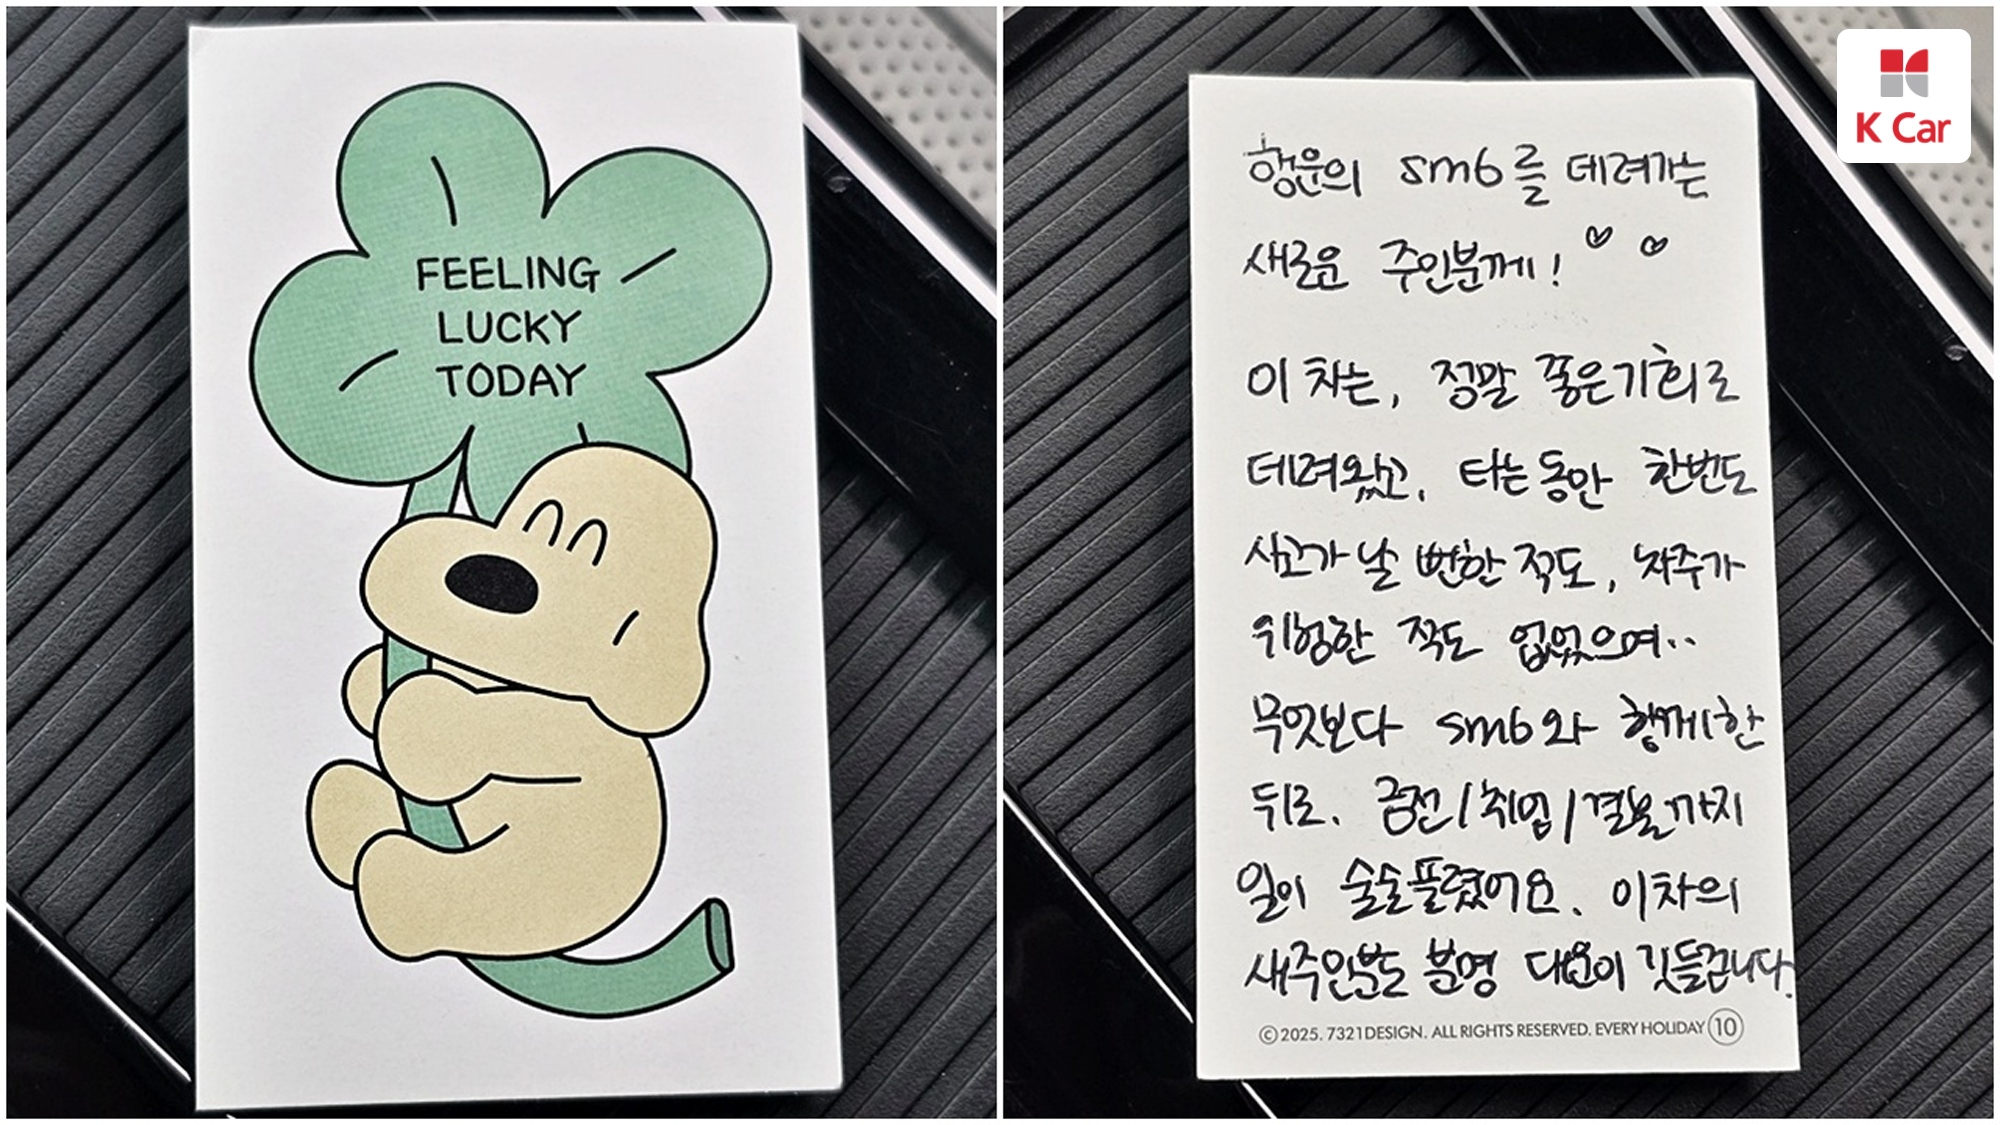 FEELING
LUCKY
TODAY
K Car
행운의 sm6를 데려가는
새로운 주인분께!
이 차는, 정말 좋은기회로
데려왔고, 타는동안 한번도
사고가 날 뻔한 적도, 차주가
위험한 적도 없었으며..
무엇보다 sm6와 함께한
뒤로, 금전/취업/결혼까지
일이 술술풀렸어요. 이차의
새주인분도 분명 대운이 깃들겁니다.
© 2025. 7321DESIGN. ALL RIGHTS RESERVED. EVERY HOLIDAY 10